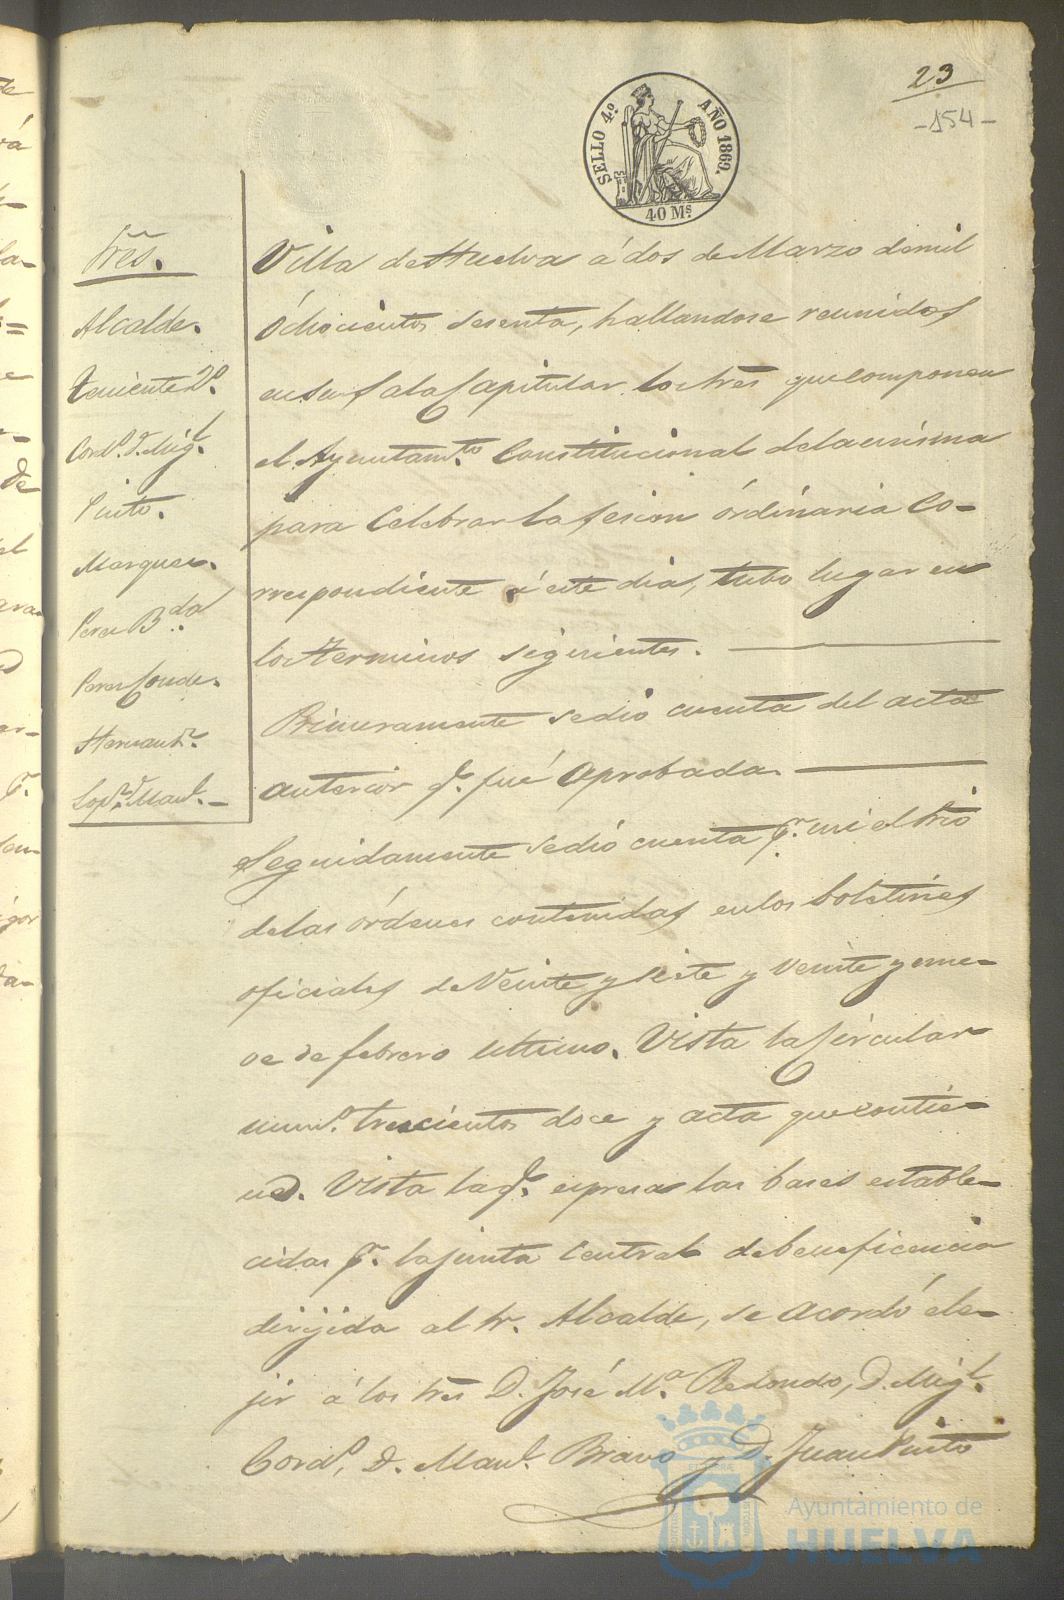 23
-154-
SELLO 4º AÑO 1869.
40 Ms
Sres.
Alcalde.
Teniente 2º.
Cordº. D. Migl.
Pinto.
Marquez.
Perez Bdo.
Perez Conde.
Hernandz.
Lopz. Manl.
Villa de Huelva á dos de Marzo de mil
óchocientos sesenta, hallandose reunidos
en su Sala Capitular los Sres que componen
el Ayuntamto. Constitucional de la misma
para Celebrar la sesion órdinaria co-
rrespondiente á este dia, tubo lugar en
los terminos sigientes.
Primeramente se dió cuenta del acta
anterior q. fué aprobada.
Seguidamente se dió cuenta pr. mi el Srio
de las órdenes contenidas en los boletines
oficiales de Veinte y siete y veinte y nue-
ve de febrero ultimo. Vista la Circular
numº. trescientos doce y acta que contie-
ne. Vista la q. espresa las bases estable-
cidas pr. la junta Central de beneficencia
dirijida al Sr. Alcalde, se acordó ele-
jir á los Sres D. José Mª. Redondo, D. Migl.
Cordº, D. Manl. Bravo y D. Juan Pinto
Ayuntamiento de
HUELVA